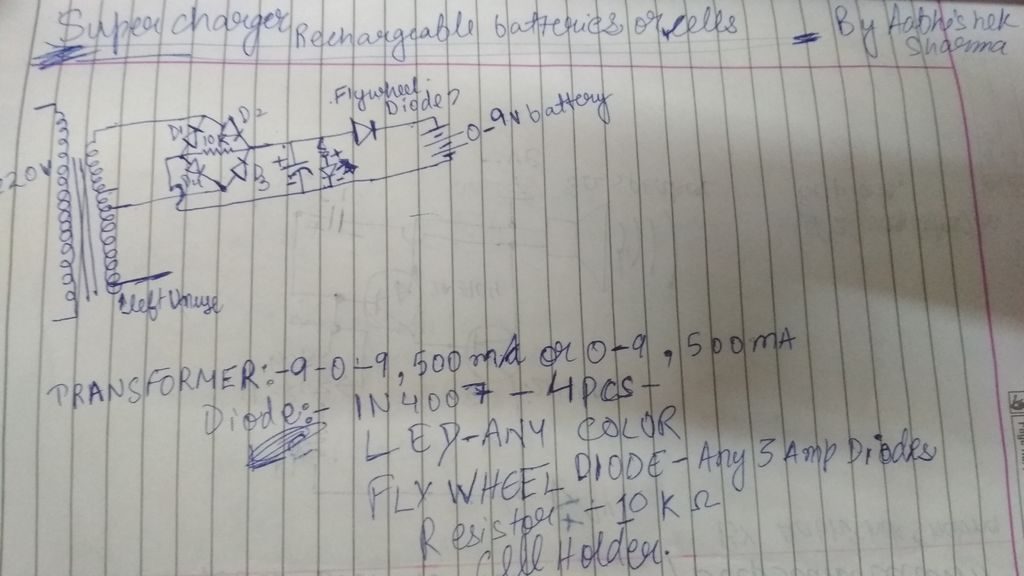 Super charger Rechargeable batteries or cells - By Aabhishek
Sharma
Flywheel
Diode
0-9V battery
D1
D2
10k
D4
D3
220V
left Unuse
TRANSFORMER:-9-0-9, 500mA or 0-9, 500mA
Diode:- IN4007 - 4pcs-
LED-ANY COLOR
FLY WHEEL DIODE-Any 3 Amp Diodes
Resistor - 10 K Ω
Cell Holder.